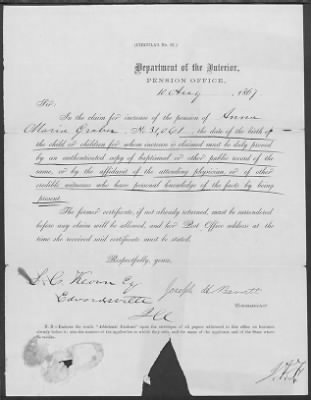 (CIRCULAR No. 22.)
Department of the Interior,
PENSION OFFICE,
10 Aug , 1867.
Sir:
In the claim for increase of the pension of Anna
Maria Graber No. 31,061, the date of the birth of
the child or children for whom increase is claimed must be duly proved
by an authenticated copy of baptismal or other public record of the
same, or by the affidavit of the attending physician, or of other
credible witnesses who have personal knowledge of the facts by being
present.
The former certificate, if not already returned, must be surrendered
before any claim will be allowed, and her Post Office address at the
time she received said certificate must be stated.
Respectfully, yours,
Joseph H Barrett
Commissioner
Esq
Edwardsville
Ill
N. B.—Endorse the words "Additional Evidence" upon the envelopes of all papers addressed to this office on business
already before it; also the number of the application to which they refer, and the name of the applicant, and of the State where
he resides.